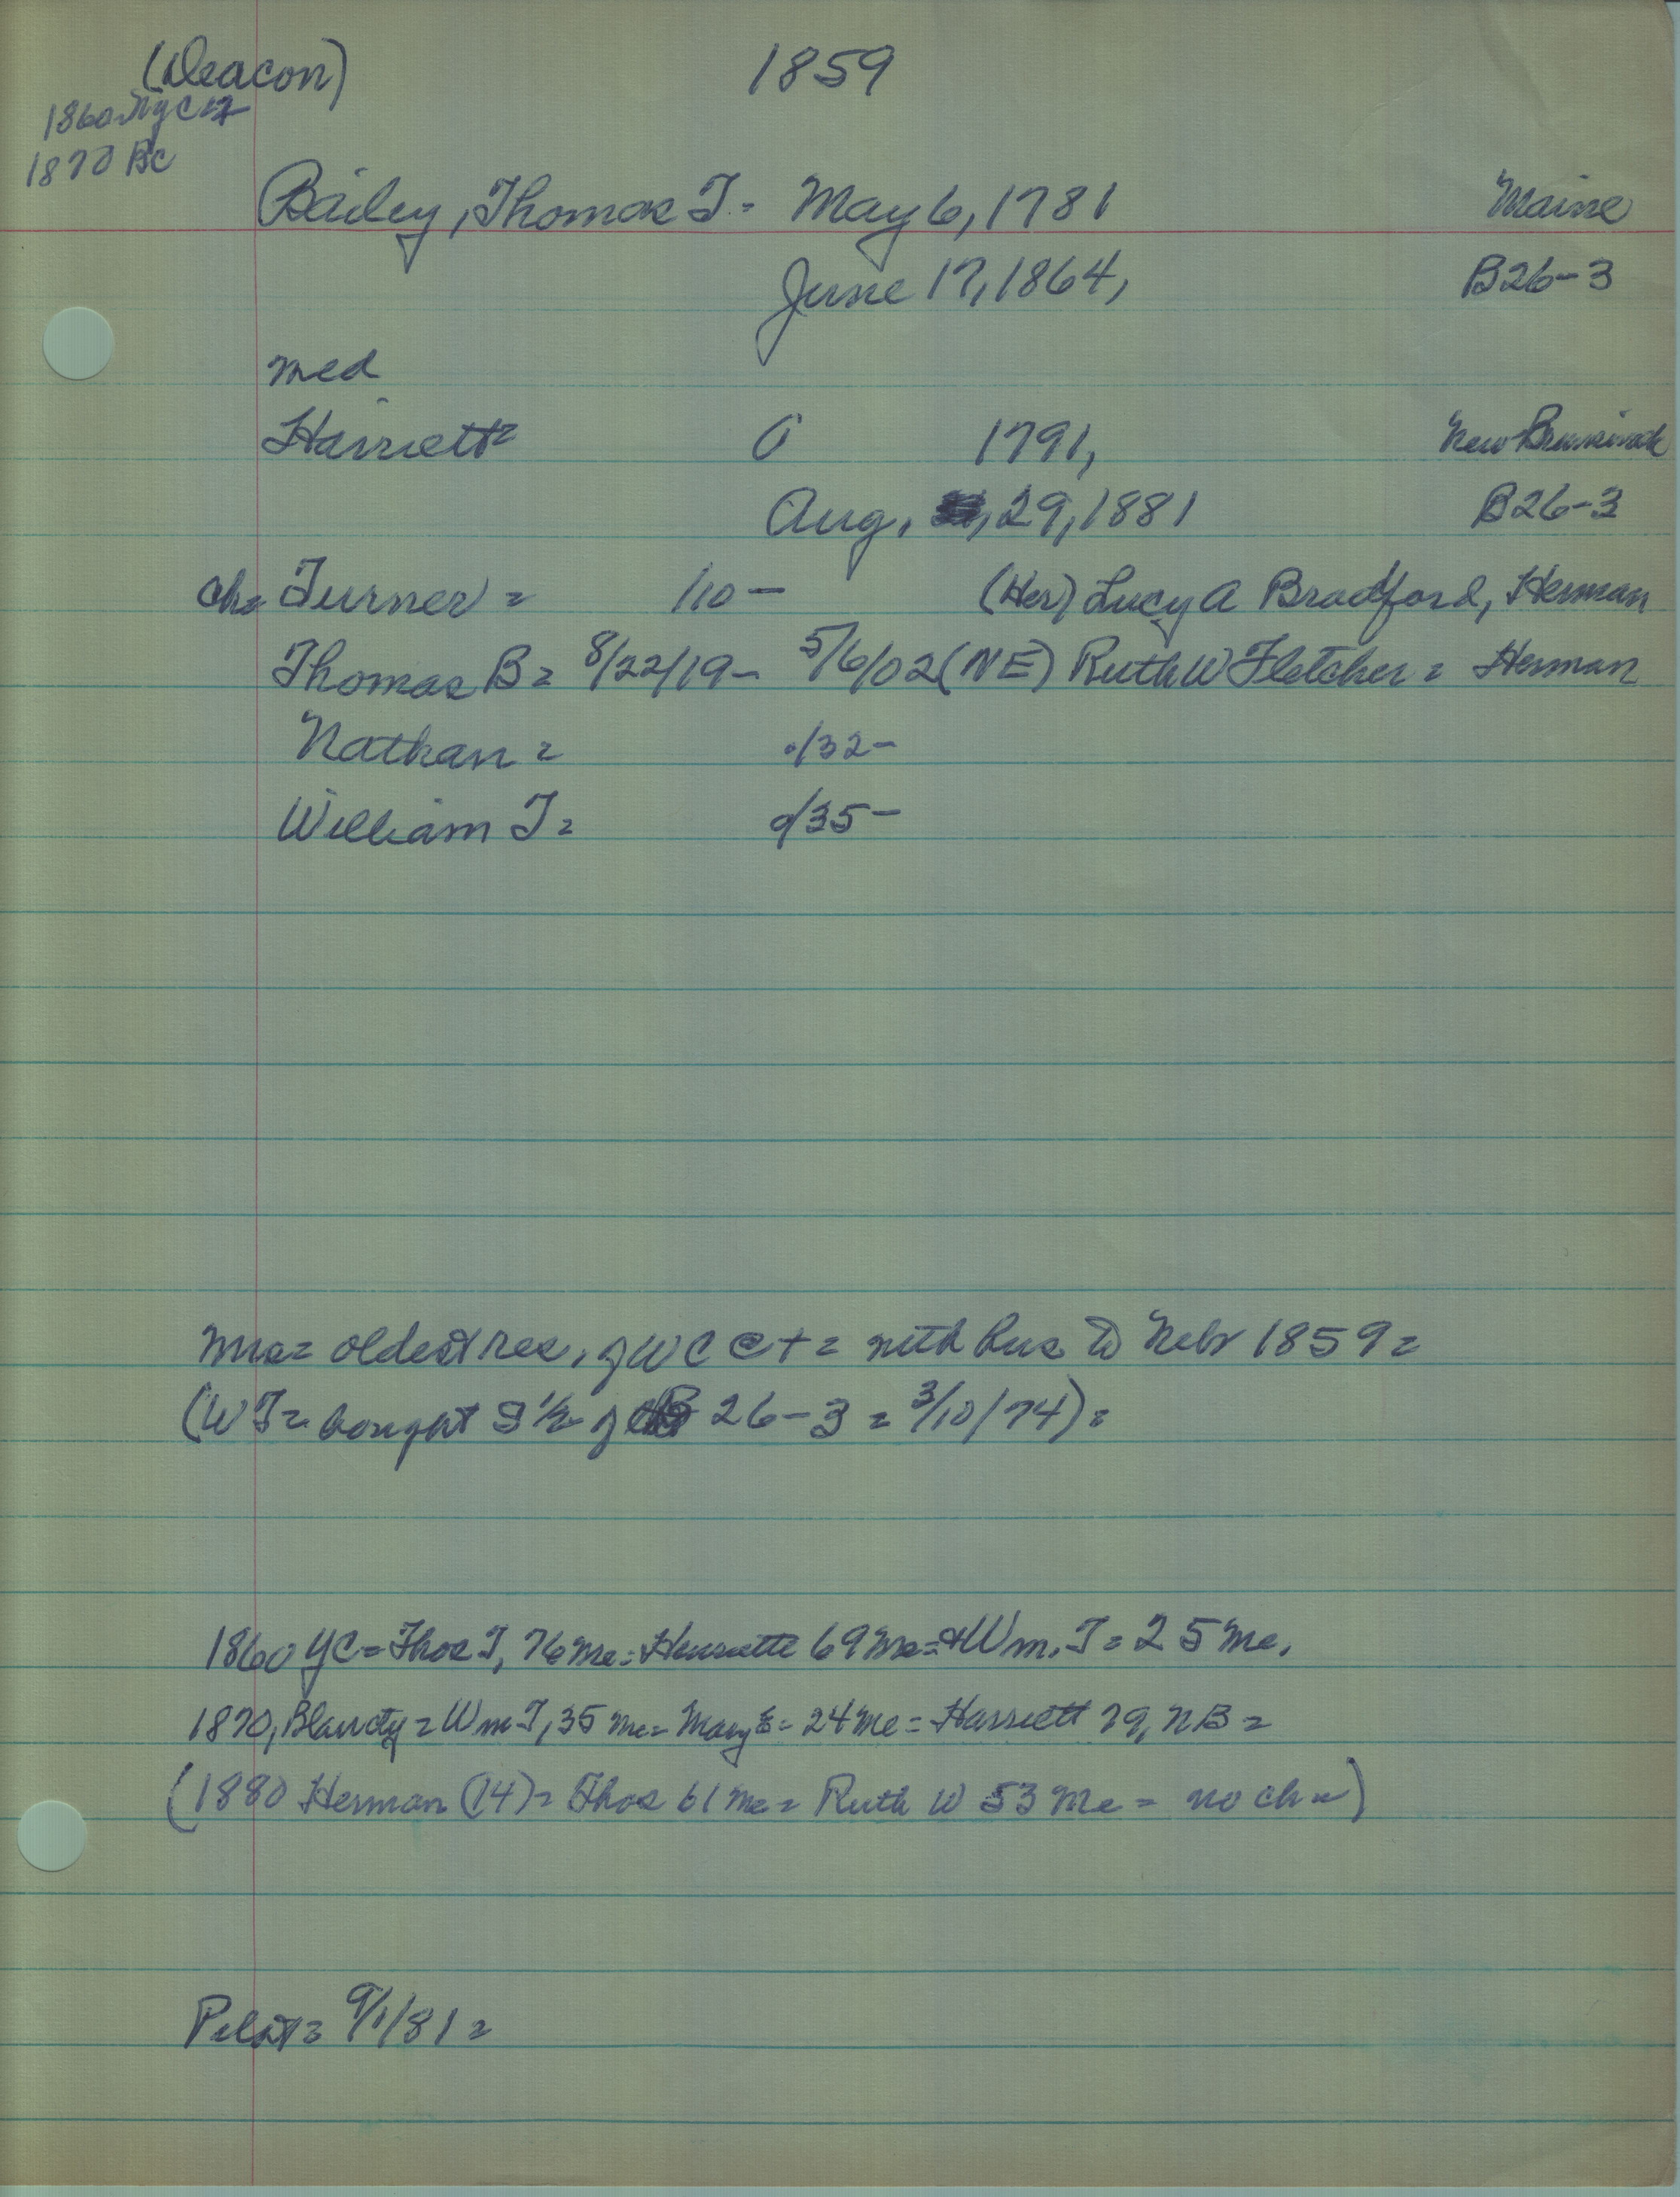 (Deacon)
1859
1860 NYC
1870 BC
Bailey, Thomas T. - May 6, 1781 Maine
June 17, 1864, B26-3
med
Harriett = 0 1791, New Brunswick
Aug., 29, 1881 B26-3
ch = Turner = /10 - (Her) Lucy A Bradford, Herman
Thomas B = 8/22/19 - 5/6/02 (NE) Ruth W Fletcher = Herman
Nathan = /32 -
William T = /35 -
Mrs = oldest res, of W C @ + = with hus to Nebr 1859 =
(WT = bought S 1/2 of B 26-3 = 3/10/74) =
1860 YC = Thos T, 76 Me = Henriette 69 Me = & Wm. T = 25 Me.
1870, Blair cty = Wm T, 35 Me = Mary E = 24 Me = Harriett 79, NB =
(1880 Herman (14) = Thos 61 Me = Ruth W 53 Me = no ch =)
Pilot = 9/1/81 =